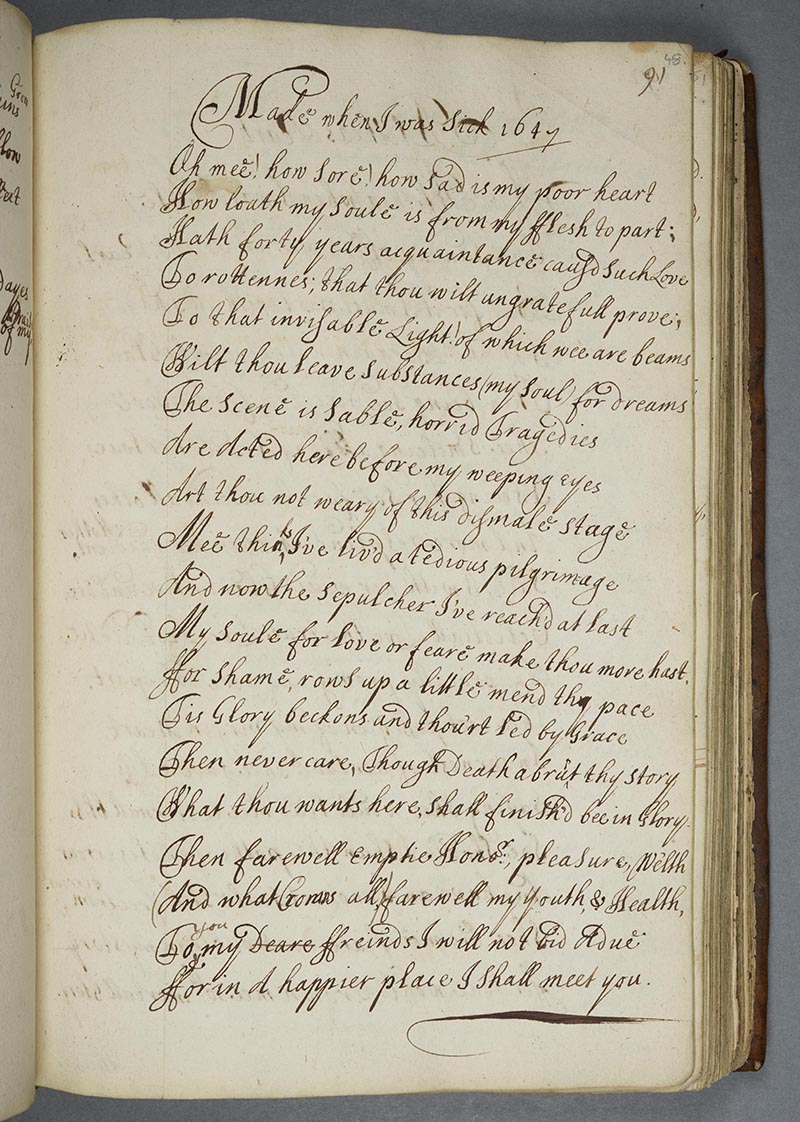 48.
91
Made when I was Sick 1647
Oh mee! how sore! how sad is my poor heart
How loath my Soule is from my fflesh to part;
Hath forty years acquaintance causd such Love
To rottennes; that thou wilt ungratefull prove;
To that invisable Light! of which wee are beams
Wilt thou leave substances (my Soul) for dreams
The Scene is sable, horrid Tragedies
Are Acted here before my weeping eyes
Art thou not weary of this dismale stage
Mee thinks I've liv'd a tedious pilgrimage
And now the Sepulcher I've reach'd at last
My Soule for love or feare make thou more hast.
ffor shame, rows up a little mend thy pace
Tis Glory beckons and thou'rt Led by Grace
Then never care, Though Death abrut thy story
What thou wants here, shall finish'd bee in Glory.
Then farewell Emptie Honor, pleasure, Welth
(And what Crowns all) farewell my Youth, & Health,
To you my Deare ffreinds I will not bid Adue
ffor in A happier place I shall meet you.
Gron
how
dayes
of my